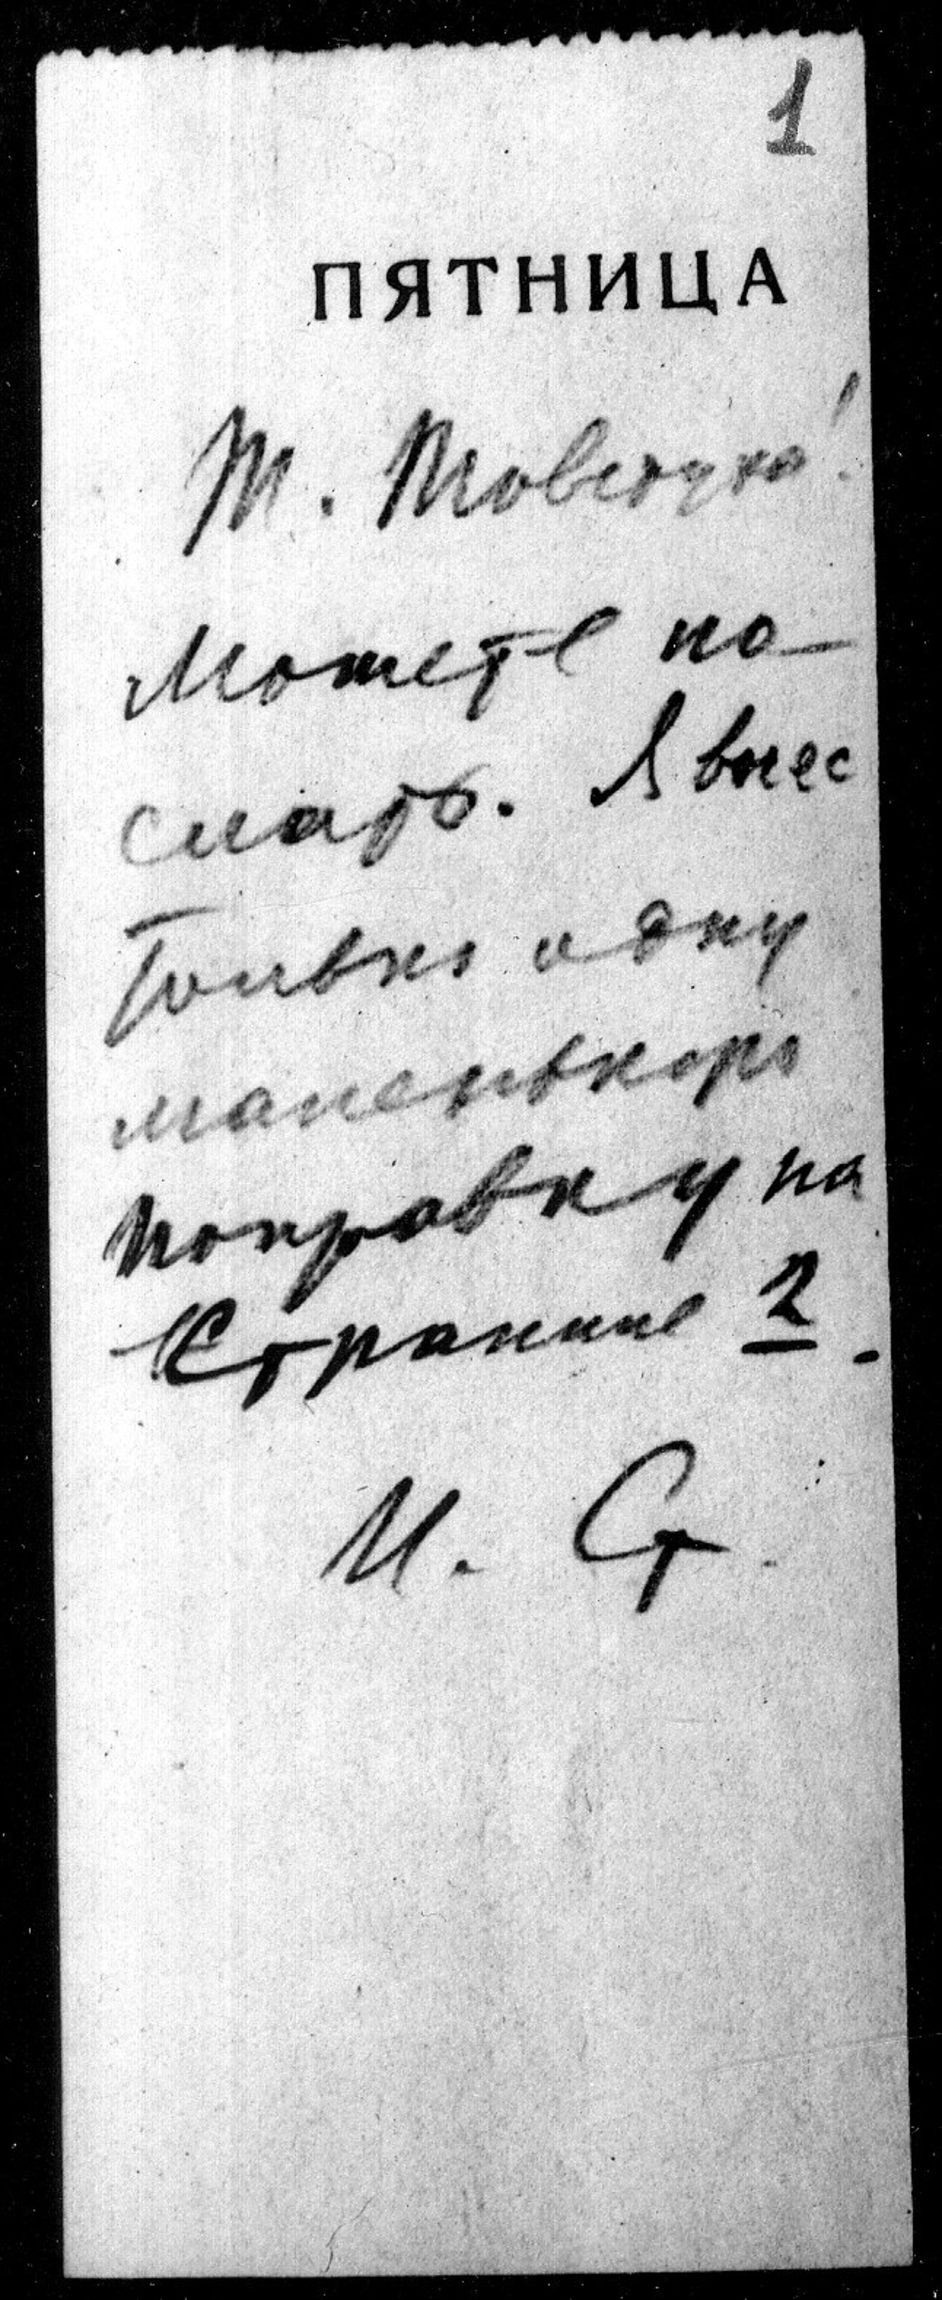 1
ПЯТНИЦА
Т. Товстуха!
Можете по-
слать. Я внес
только одну
маленькую
поправку на
странице 2.
И. Ст.